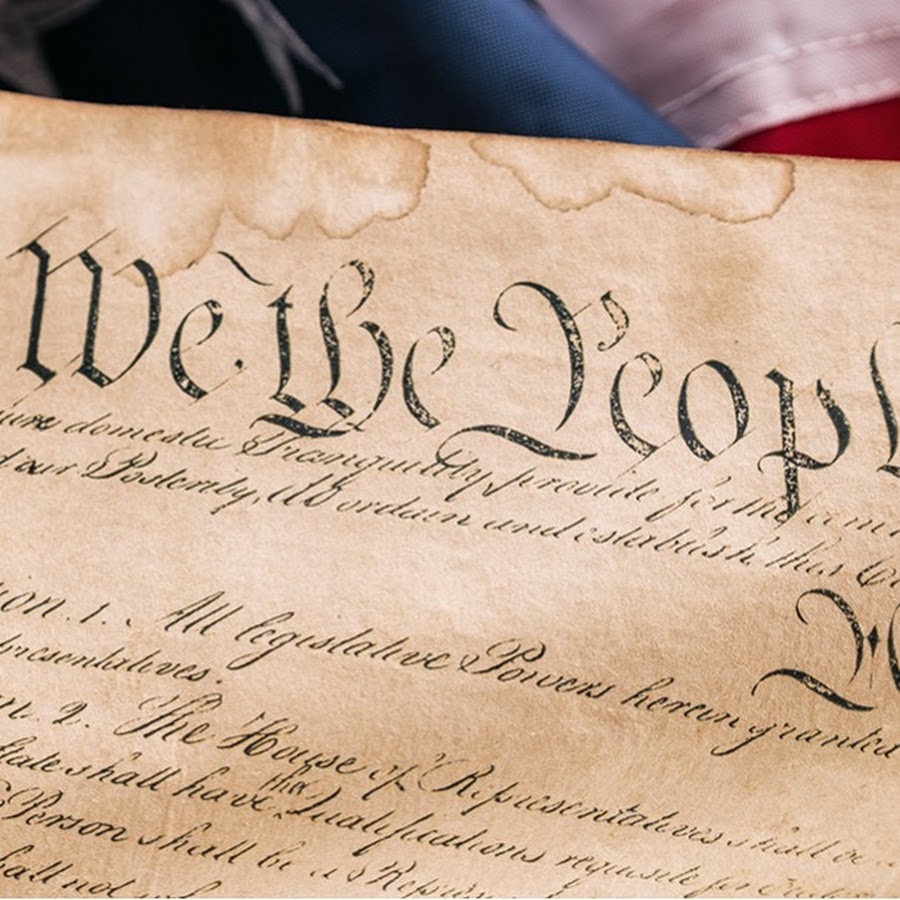 We the Peopl
ure domestic Tranquility, provide for the com
d our Posterity, do ordain and establish this Co
ion. 1. All legislative Powers herein granted
presentatives.
n. 2. The House of Representatives shall be
State shall have the Qualifications requisite for
Person shall be a Repre
hall not